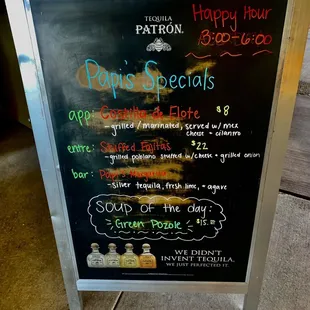 Happy Hour
3:00-6:00
TEQUILA
PATRÓN.
Papi's Specials
app: Costilla de Elote $8
- grilled / marinated, served w/ mex
cheese + cilantro
entre: Stuffed Fajitas $22
- grilled poblano stuffed w/ cheese + grilled onion
bar: Papi's
- silver tequila, fresh lime, + agave
SOUP of the day:
Green Pozole $15.
WE DIDN'T
INVENT TEQUILA.
WE JUST PERFECTED IT.